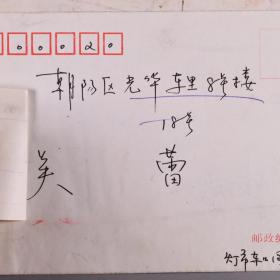 00020
朝阳区光华东里8号楼
18号
吴 蕾
邮政编
灯市东口